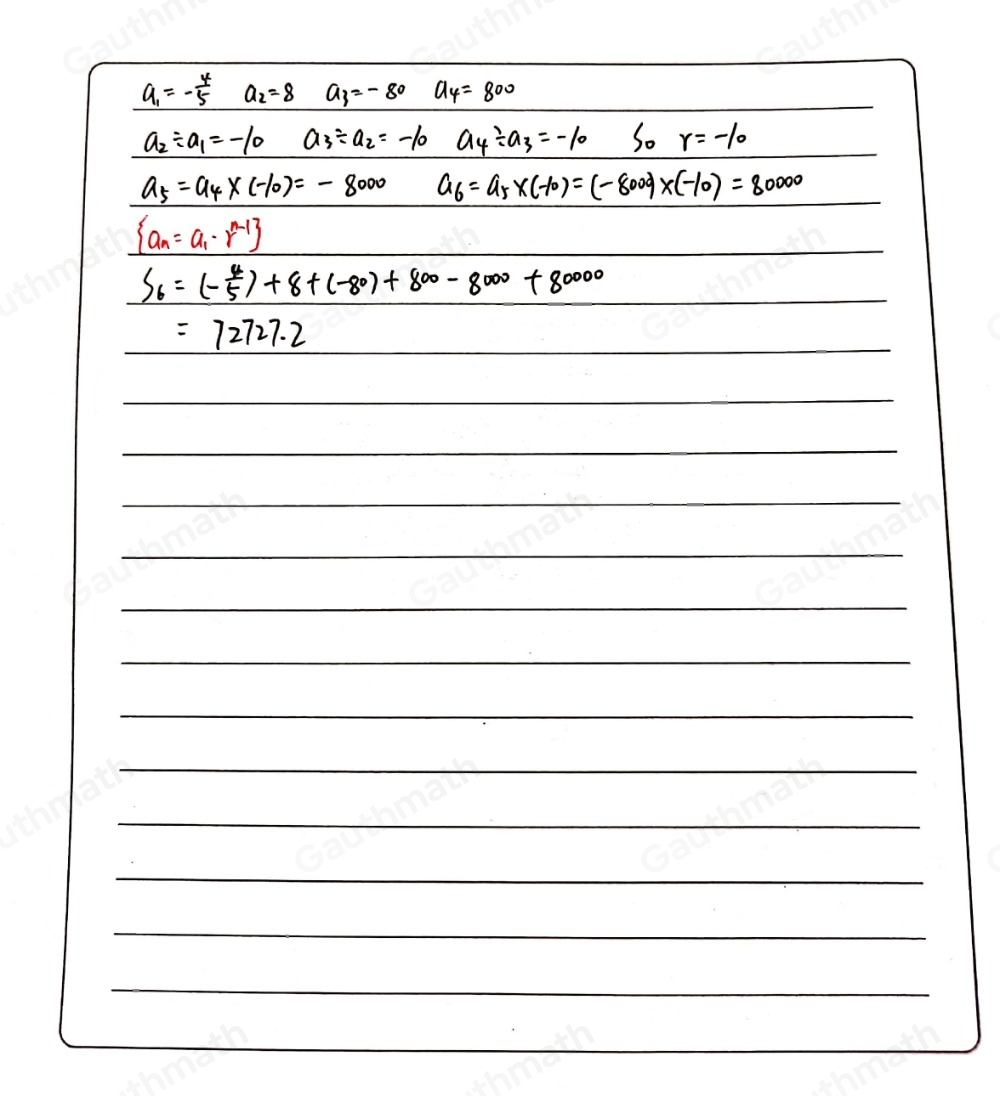 a₁ = -4/5 a₂ = 8 a₃ = -80 a₄ = 800
a₂ ÷ a₁ = -10 a₃ ÷ a₂ = -10 a₄ ÷ a₃ = -10 So r = -10
a₅ = a₄ × (-10) = -8000 a₆ = a₅ × (-10) = (-8000) × (-10) = 80000
{aₙ = a₁ · rⁿ⁻¹}
S₆ = (-4/5) + 8 + (-80) + 800 - 8000 + 80000
= 72727.2